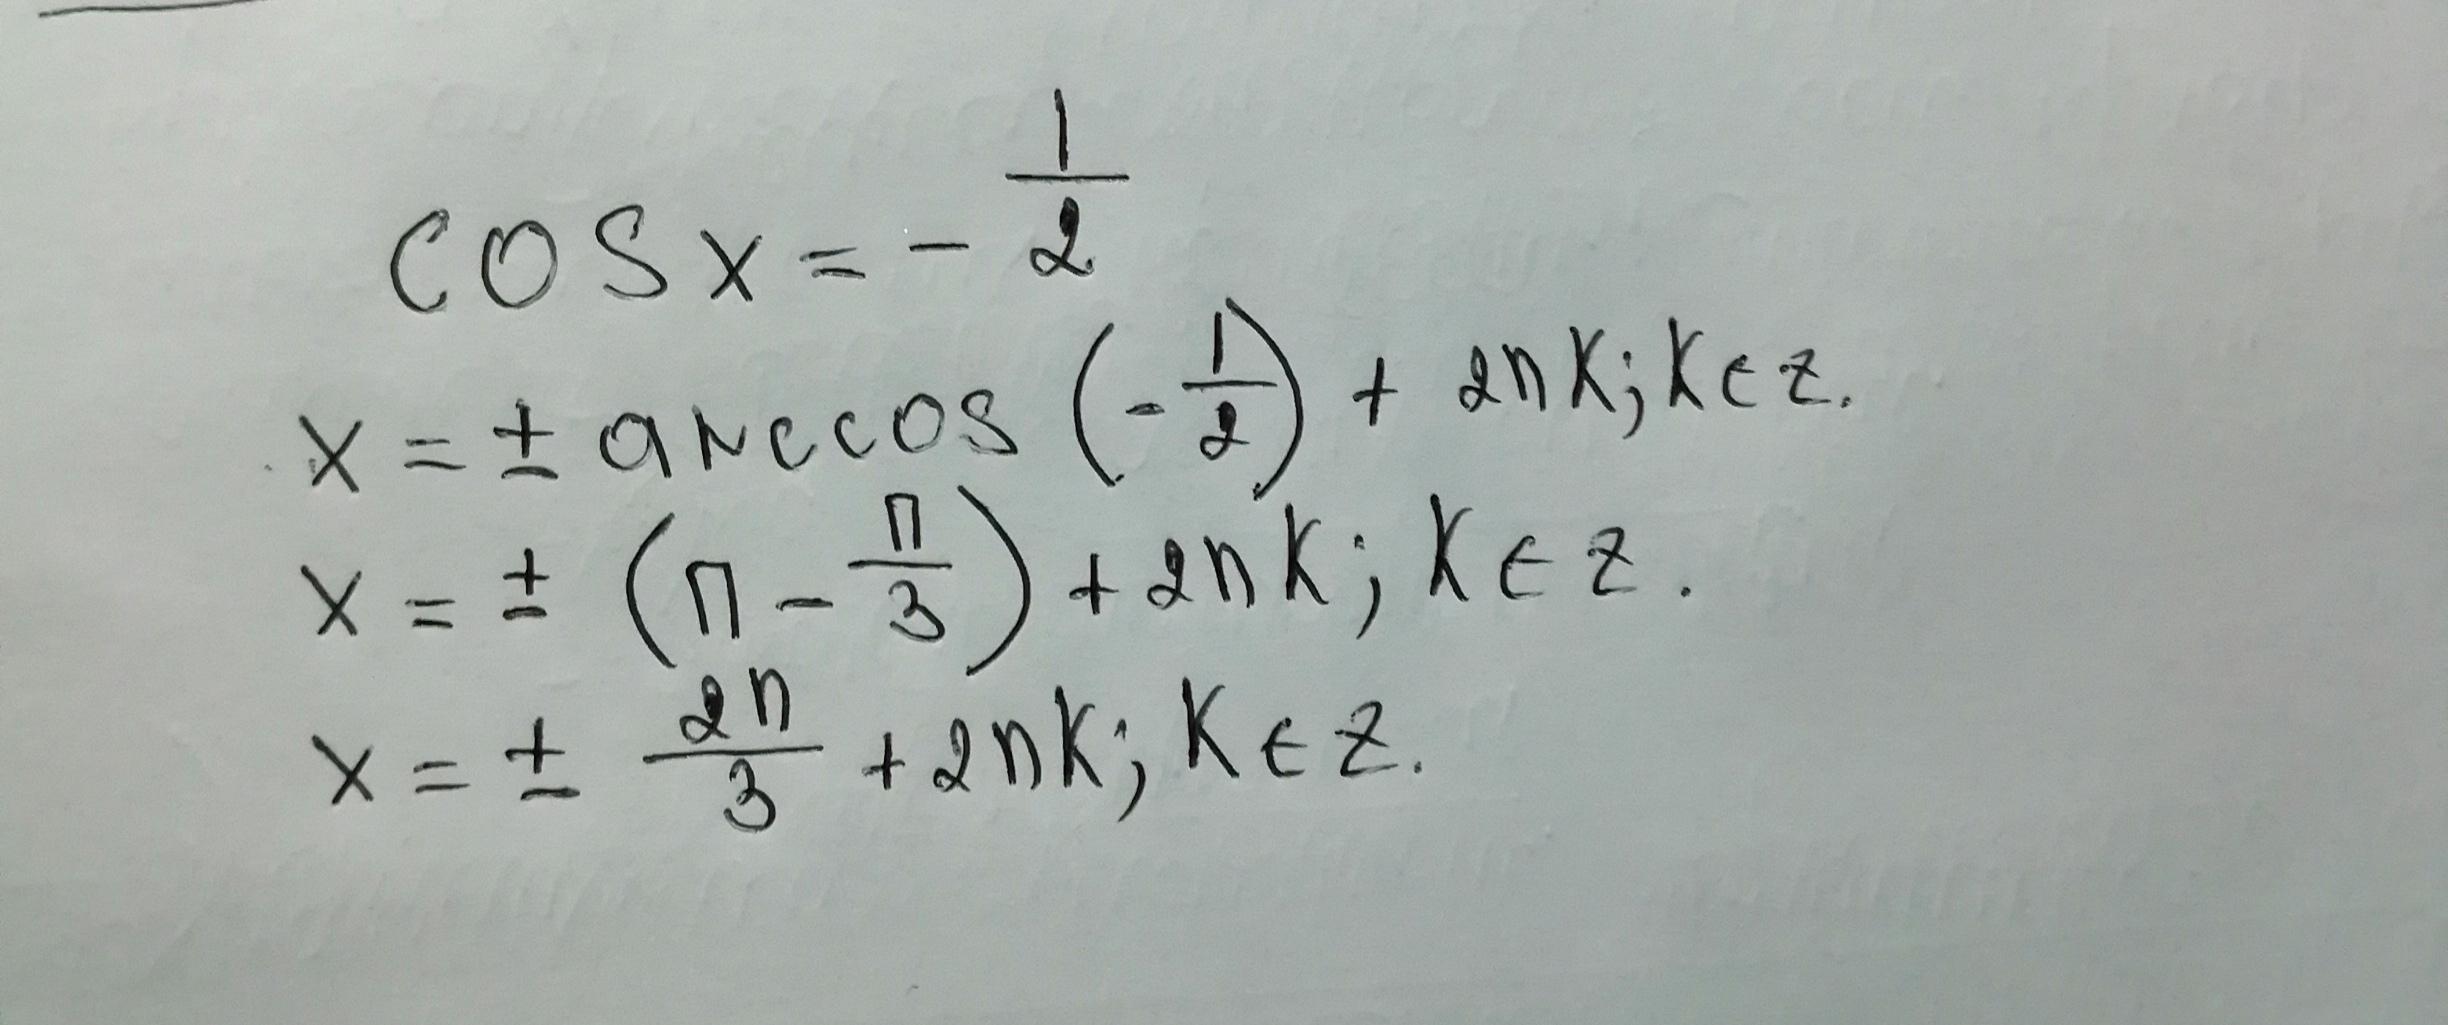 cos x = - 1/2
x = ± arccos (-1/2) + 2πk; k ∈ z.
x = ± (π - π/3) + 2πk; k ∈ z.
x = ± 2π/3 + 2πk; k ∈ z.